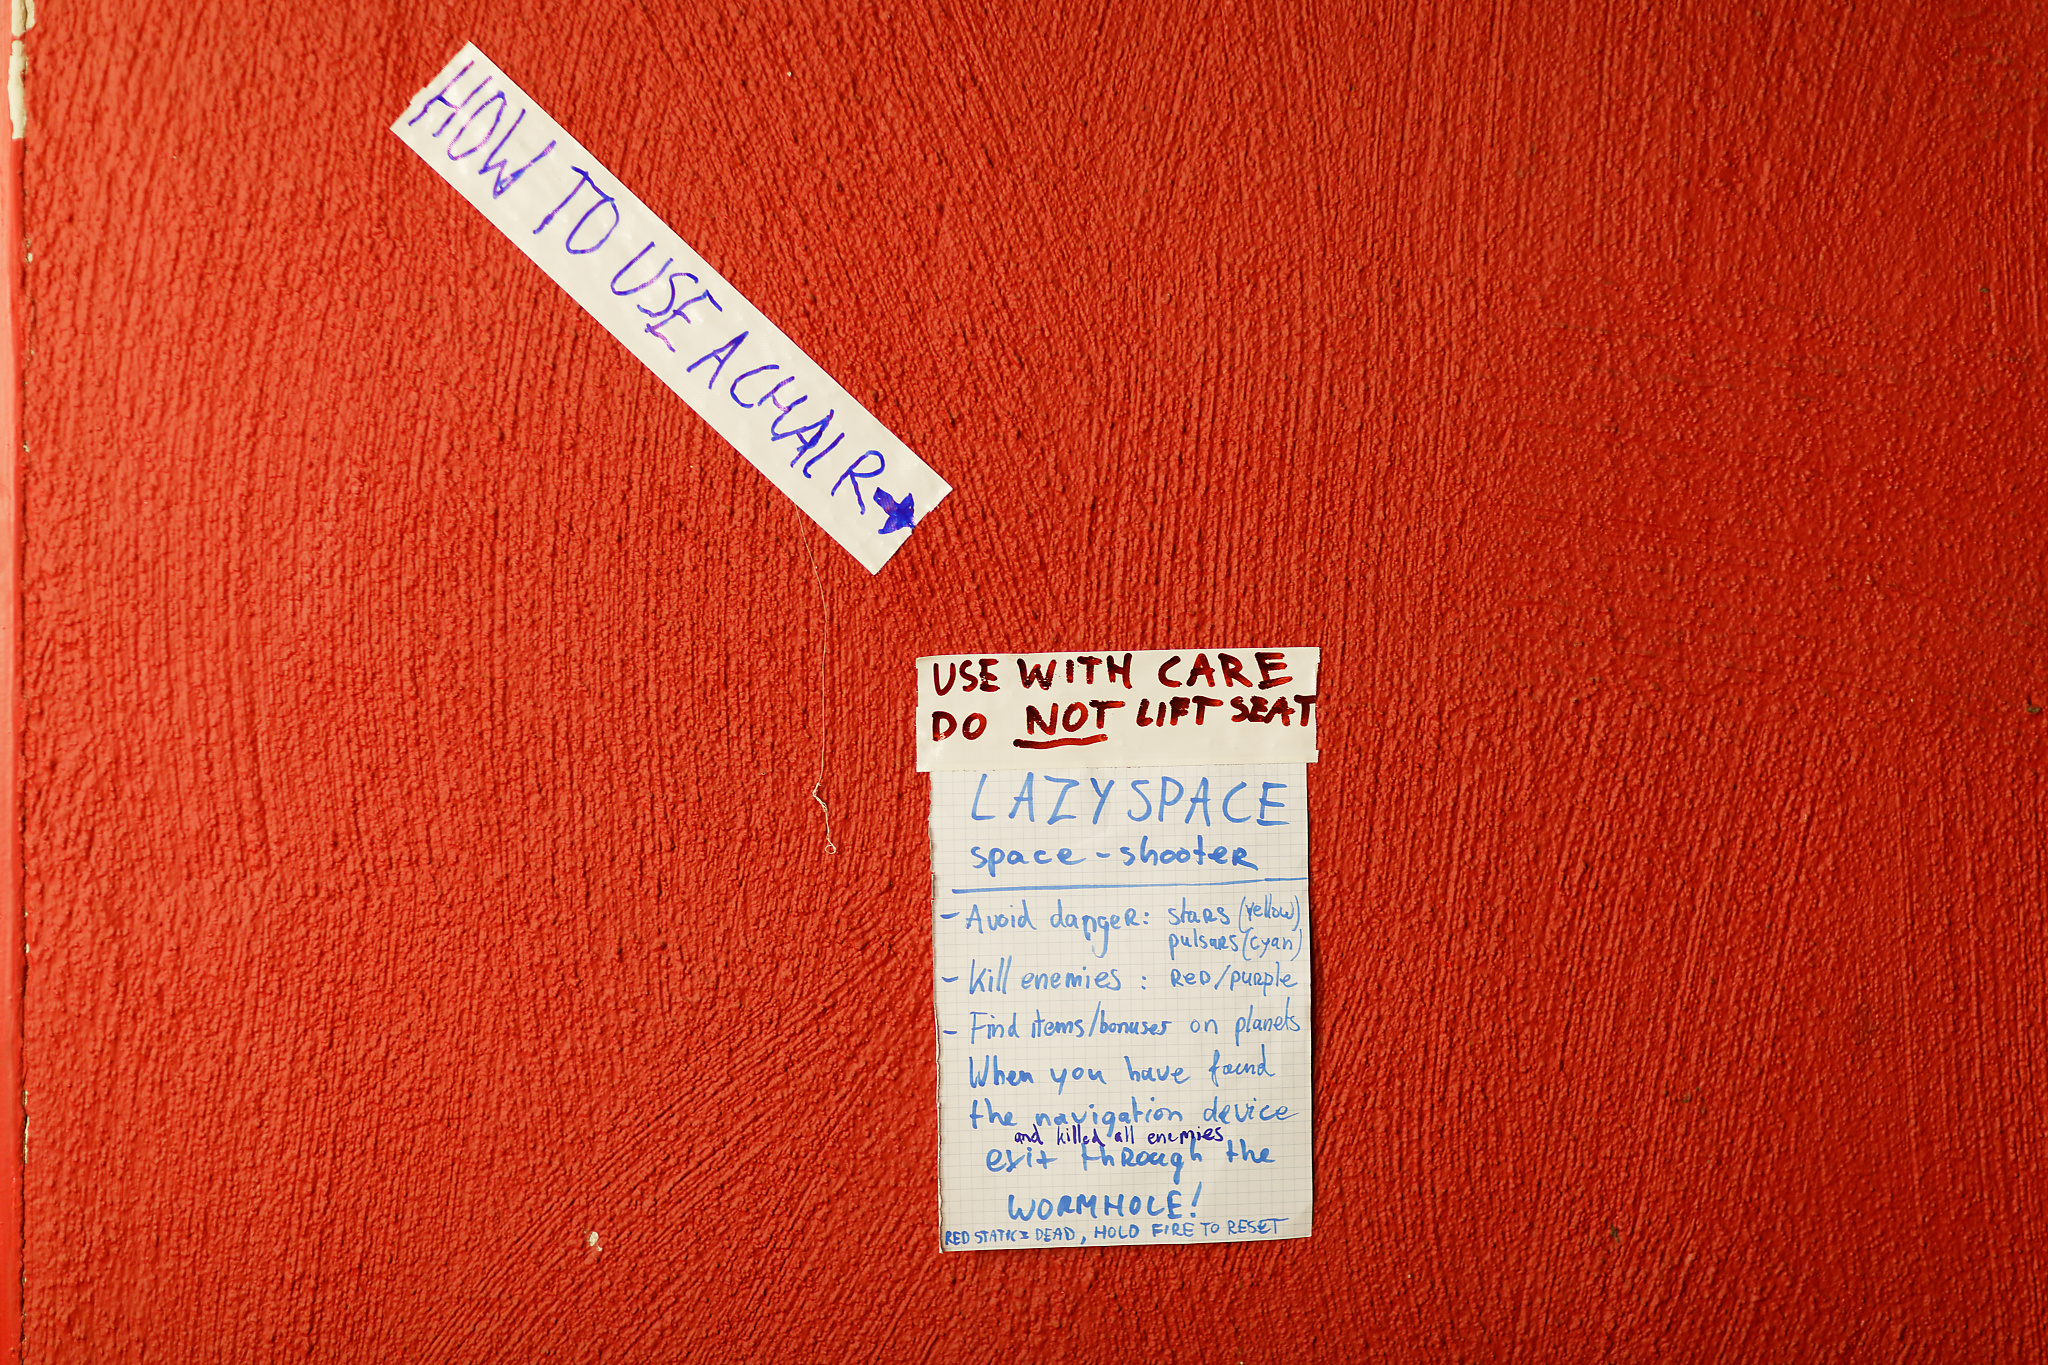 HOW TO USE A CHAIR→
USE WITH CARE
DO NOT LIFT SEAT
LAZYSPACE
space-shooter
- Avoid danger: stars (yellow)
pulsars (cyan)
- Kill enemies : Red/purple
- Find items/bonuses on planets
When you have found
the navigation device
and killed all enemies
exit through the
WORMHOLE!
RED STATIC = DEAD, HOLD FIRE TO RESET